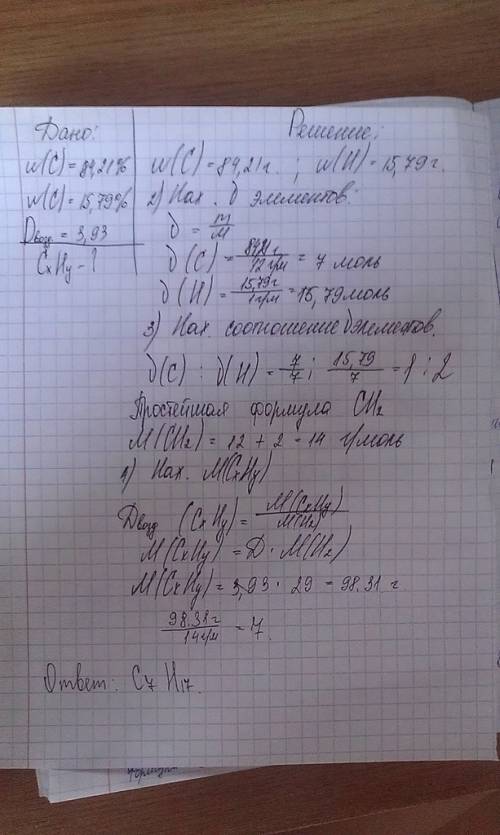 Дано:
Решение:
w(C)=84,21%
w(C)=15,79%
Dвозд = 3,93
CxHy - ?
w(C)=84,21г. ; w(H)=15,79г.
2) Нах. ν элементов:
ν = m/M
ν(C) = 84,21г/12г/м = 7 моль
ν(H) = 15,79г/1г/м = 15,79моль
3) Нах. соотношение ν элементов.
ν(C) : ν(H) = 7/7 ; 15,79/7 = 1 : 2
Простейшая формула CH2
M(CH2) = 12 + 2 = 14 г/моль
4) Нах. M(CxHy)
Dвозд (CxHy) = M(CxHy)/M(H2)
M(CxHy) = D · M(H2)
M(CxHy) = 3,93 · 29 = 98.31 г
98.38г/14г/м = 7.
Ответ: C7 H17.